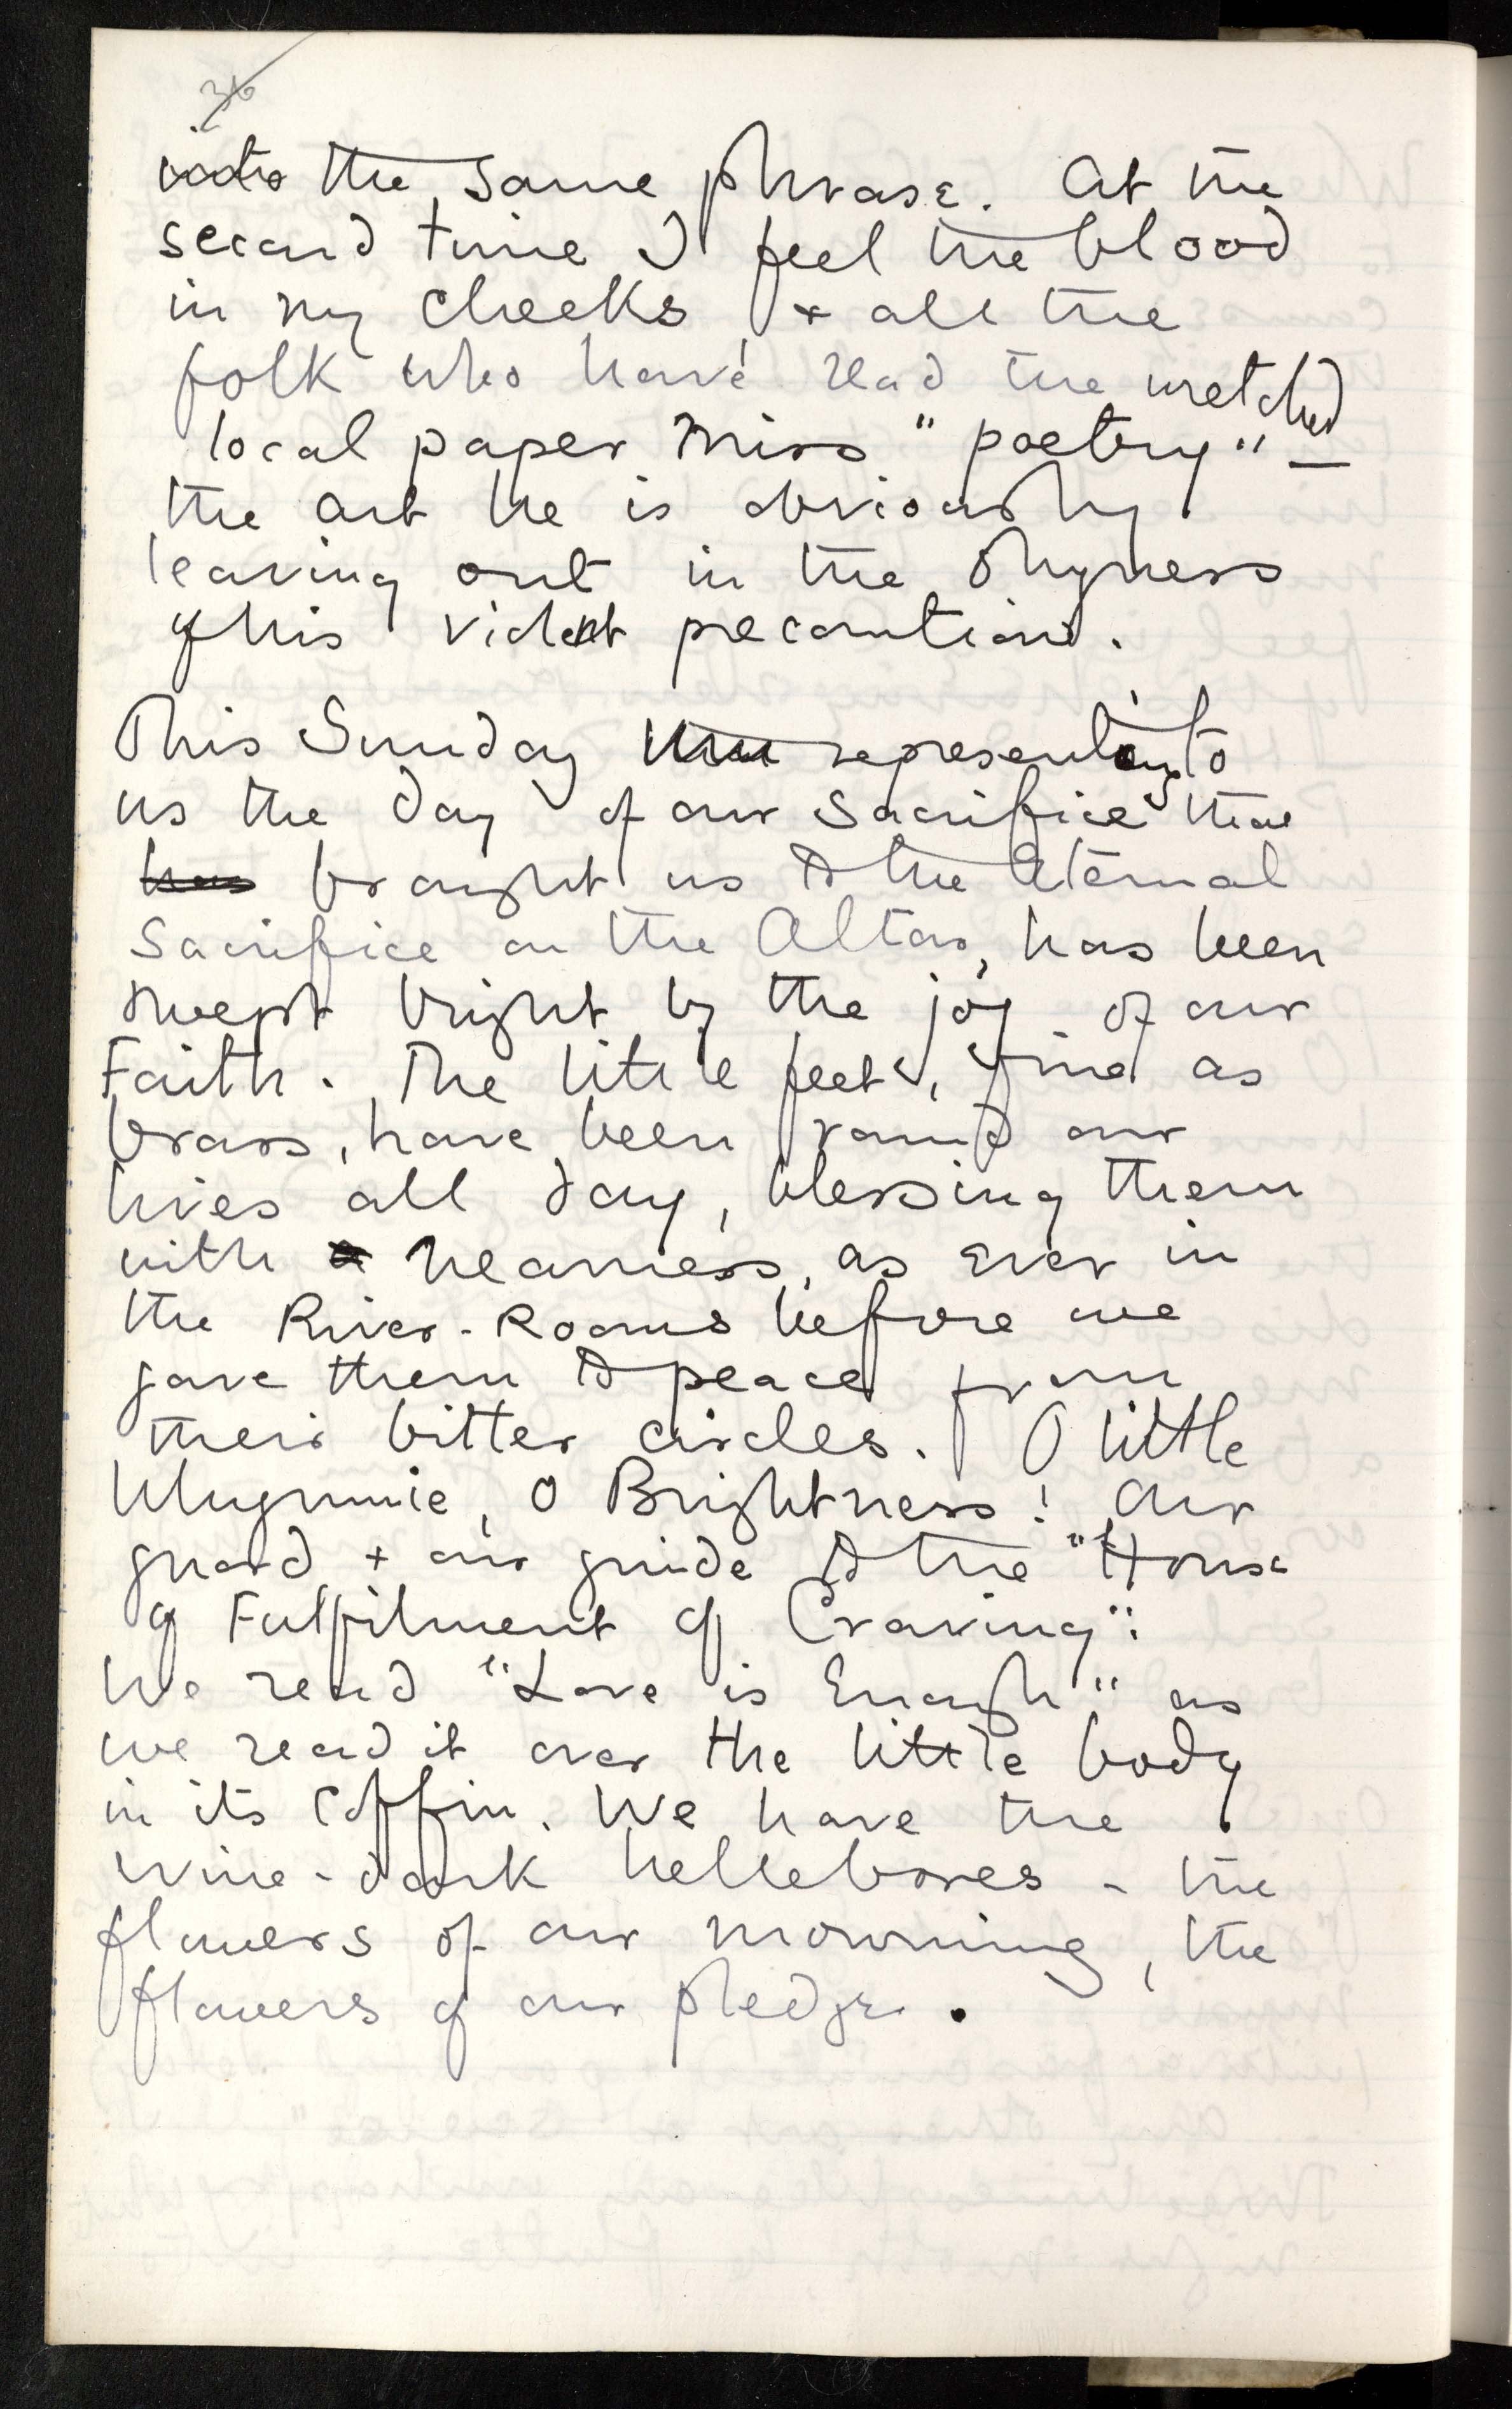 36
into the same phrase. At the
second time I feel the blood
in my cheeks, & all the
folk who have read the wretched
local paper miss "poetry" —
the art he is obviously
leaving out in the shyness
of his violent precaution.
This Sunday representing to
us the day of our sacrifice that
has brought us to the Eternal
Sacrifice on the Altar, has been
swept bright by the joy of our
Faith. The little feet, fine as
brass, have been round our
lives all day, blessing them
with a nearness, as ever in
the River-Rooms before we
gave them to peace from
their bitter circles. O little
Whymmie, O Brightness! Our
guard + our guide to the "House
of Fulfilment of Craving":
We read "Love is Enough" as
we read it over the little body
in its coffin. We have the
wine-dark hellebores - the
flowers of our mourning, the
flowers of our pledge.